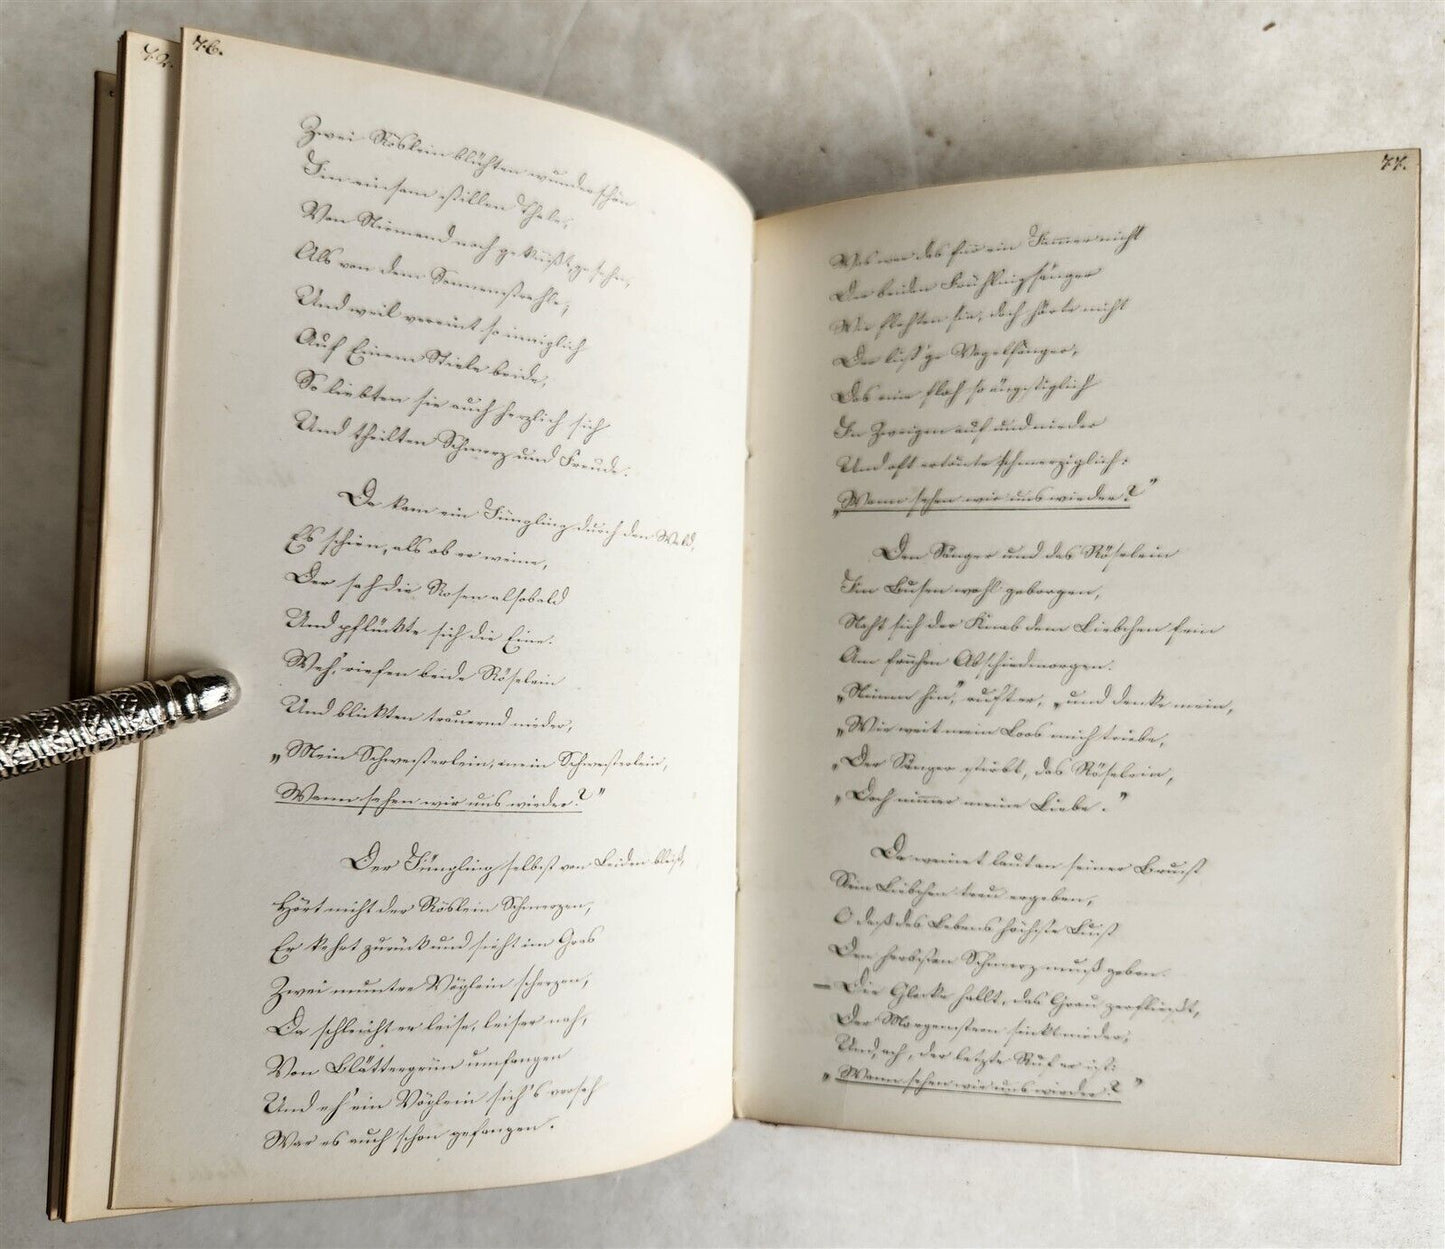 72.
76.
Zwei Röslein blühten wunderschön
Im einsam stillen Thale,
Von Niemand noch geküßt, gesehn,
Als von dem Sonnenstrahle;
Und weil vereint so inniglich
Auf Einem Stiele beide,
So liebten sie auch herzlich sich
Und theilten Schmerz und Freude.
Da kam ein Jüngling durch den Wald,
Es schien, als ob er weine,
Der sah die Rosen alsobald
Und pflückte sich die Eine.
Weh', riefen beide Röselein
Und blickten trauernd nieder,
„Mein Schwesterlein, mein Schwesterlein,
Wann sehen wir uns wieder?"
Der Jüngling selbst von Leiden blaß,
Hört nicht der Röslein Schmerzen,
Er kehrt zurück und sieht im Gras
Zwei muntre Vöglein scherzen;
Da schleicht er leise, leiser nah,
Von Blättergrün umfangen
Und eh' ein Vöglein sich's versah
War es auch schon gefangen.
77.
Was war das für ein Jammer nicht
Der beiden Frühlingssänger
Wie flehten sie, doch hörte nicht
Der lust'ge Vogelfänger;
Das eine floh so ängstiglich
In Zweigen auf und nieder
Und oft ertönte schmerziglich:
„Wann sehen wir uns wieder?"
Den Sänger und das Röselein
Im Busen wohl geborgen,
Naht sich der Knab dem Liebchen fein
Am frühen Abschiedmorgen.
„Nimm hin", ruft er, „und denke mein,
„Wie weit mein Loos mich triebe,
„Der Sänger stirbt, das Röselein,
„Doch nimmer meine Liebe."
Da weinet laut an seiner Brust
Sein Liebchen treu ergeben,
O daß des Lebens höchste Lust
Den herbsten Schmerz muß geben.
– Die Glocke hallt, das Grau zerfließt,
Der Morgenstern sinkt nieder,
Und, ach, der letzte Ruf er ist:
„Wann sehen wir uns wieder?"